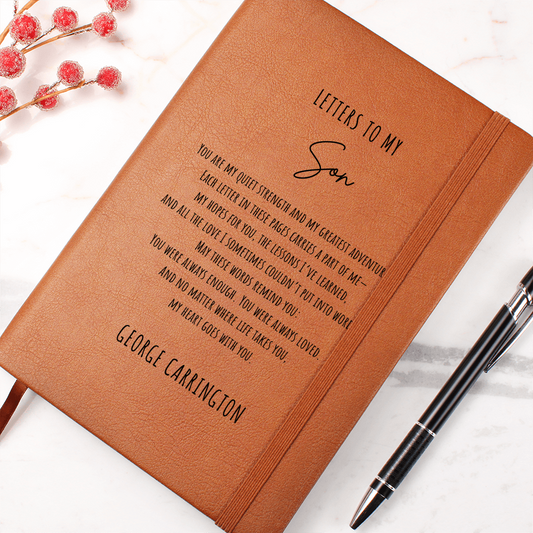 LETTERS TO MY
Son
YOU ARE MY QUIET STRENGTH AND MY GREATEST ADVENTUR
EACH LETTER IN THESE PAGES CARRIES A PART OF ME—
MY HOPES FOR YOU, THE LESSONS I'VE LEARNED,
AND ALL THE LOVE I SOMETIMES COULDN'T PUT INTO WORD
MAY THESE WORDS REMIND YOU:
YOU WERE ALWAYS ENOUGH. YOU WERE ALWAYS LOVED.
AND NO MATTER WHERE LIFE TAKES YOU,
MY HEART GOES WITH YOU.
GEORGE CARRINGTON